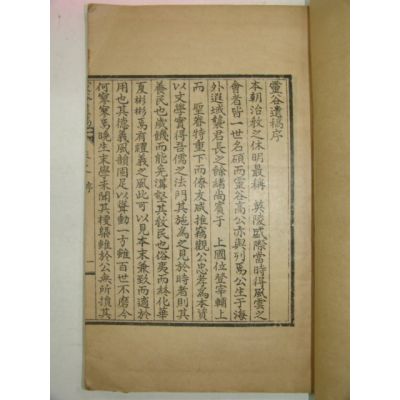 靈谷遺稿序
本朝治敎之休明最稱 英陵盛際當時得風雲之
會者皆一世名碩而靈谷高公亦與列焉公生于海
外遐域襲君長之餘緖尙賓于 上國位登宰輔上
而 聖眷特重下而僚友咸推竊觀公忠孝爲本資
以文學實得吾儒之法門其施爲之見於時者則其
養民也歲饑而能先溝壑其敎民也俗夷而能化華
夏彬彬焉有禮義之風此可以見本末兼致而適於
用也其德義風韻固足以聳動一方雖百世不磨今
何寥寥焉晚生末學未闖其梗槩雖於公無所損其
序
一